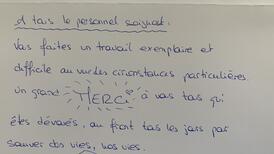 à tous le personnel soignant.
Vous faites un travail exemplaire et
difficile au vu des circonstances particulières.
un grand MERCI à vous tous qui
êtes dévoués, au front tous les jours pour
sauver des vies, nos vies.